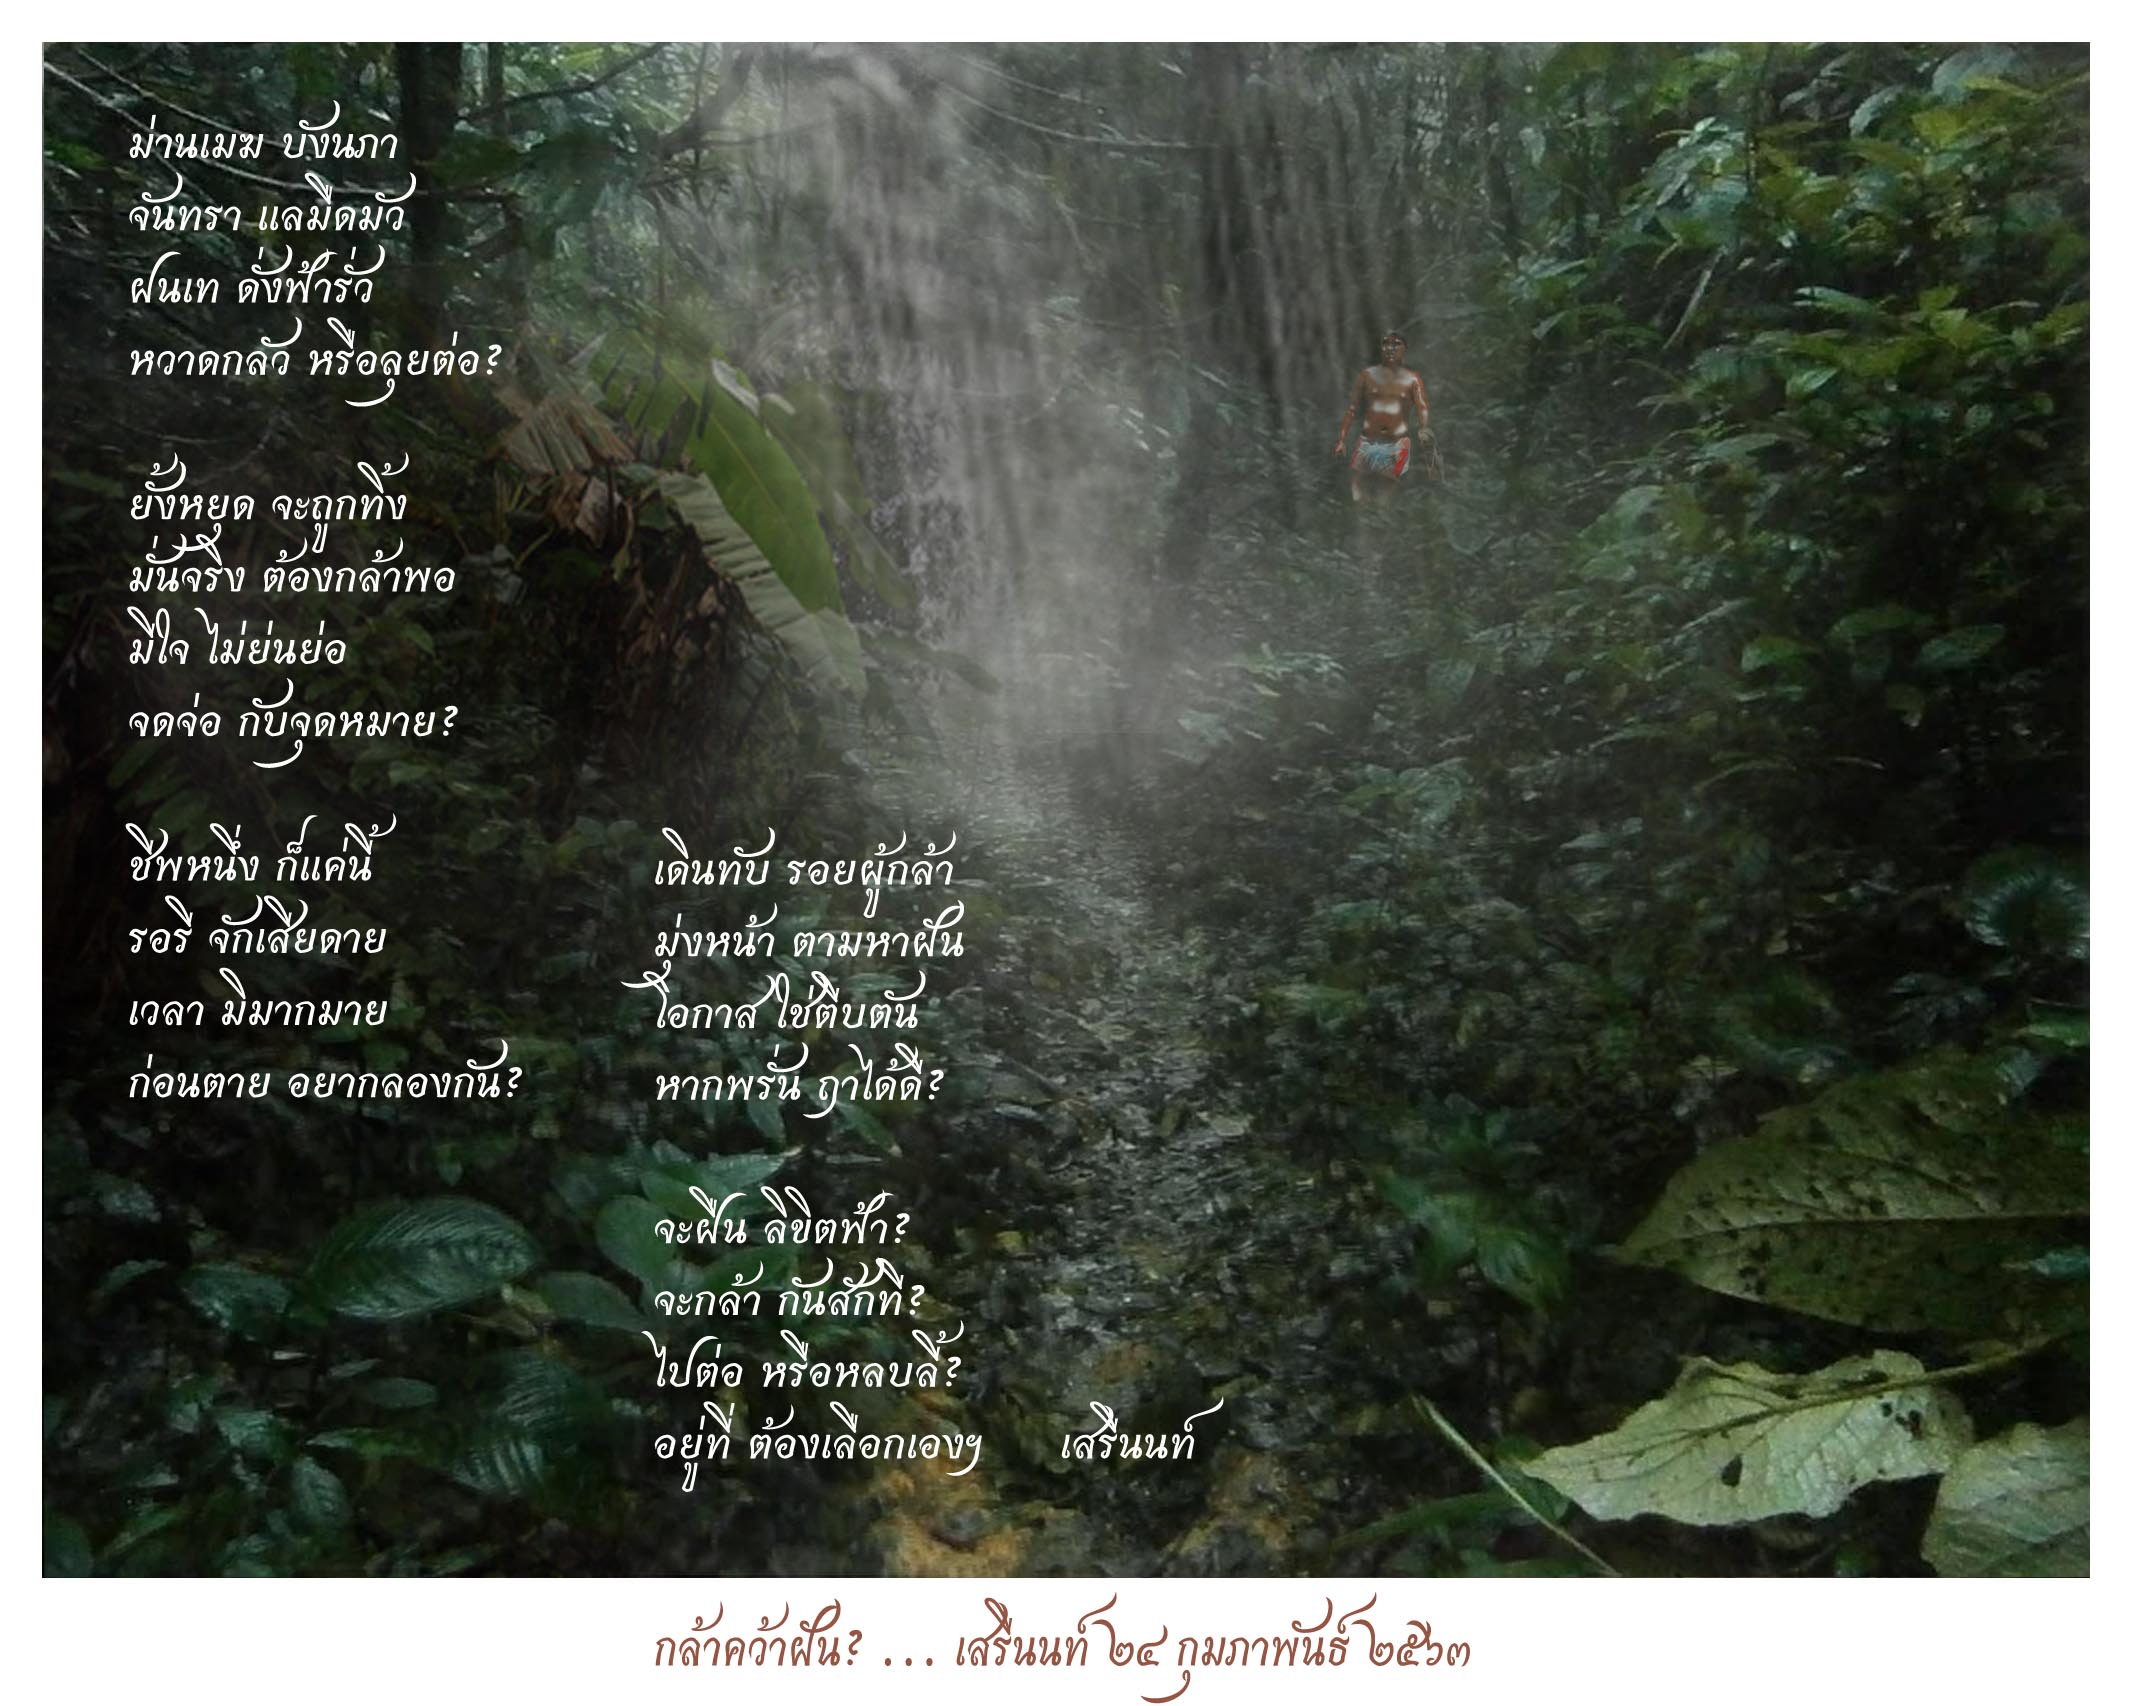 ม่านเมฆ บังนภา
จันทรา แลมืดมัว
ฝนเท ดั่งฟ้ารั่ว
หวาดกลัว หรือลุยต่อ?
ยั้งหยุด จะถูกทิ้ง
มั่นจริง ต้องกล้าพอ
มีใจ ไม่ย่นย่อ
จดจ่อ กับจุดหมาย?
ชีพหนึ่ง ก็แค่นี้
รอรี จักเสียดาย
เวลา มิมากมาย
ก่อนตาย อยากลองกัน?
เดินทับ รอยผู้กล้า
มุ่งหน้า ตามหาฝัน
โอกาส ใช่ตีบตัน
หากพรั่น ฤาได้ดี?
จะฝืน ลิขิตฟ้า?
จะกล้า กันสักที?
ไปต่อ หรือหลบลี้?
อยู่ที่ ต้องเลือกเองฯ เสรีนนท์
กล้าคว้าฝัน? ... เสรีนนท์ ๒๔ กุมภาพันธ์ ๒๕๖๓